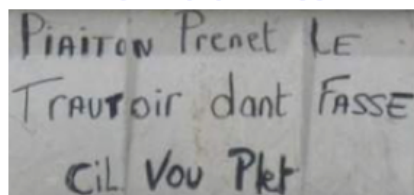 PIAITON Prenet LE
TrAUToir dant FASSE
CiL Vou Plet